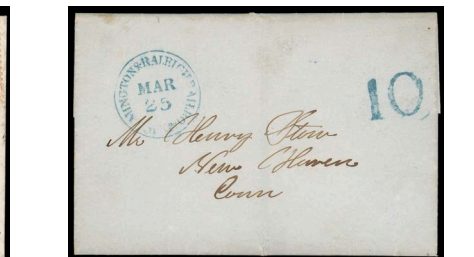 WILMINGTON & RALEIGH RAILROAD
MAR
25
10
Mr Henry Stow
New Haven
Conn